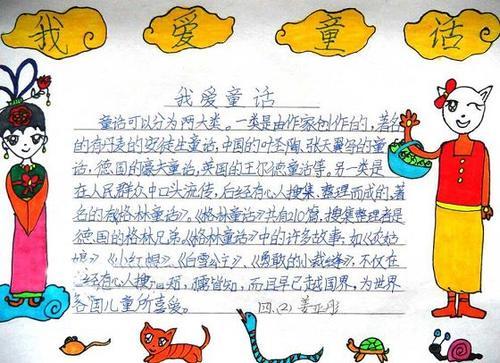 我爱童话
我爱童话
童话可以分为两大类。一类是由作家创作的,著名
的有丹麦的安徒生童话,中国的叶圣陶、张天翼等的童
话,德国的豪夫童话,英国的王尔德童话等。另一类是
在人民群众中口头流传,后经有心人搜集、整理而成的,著
名的有《格林童话》。《格林童话》共有210篇,搜集整理者是
德国的格林兄弟。《格林童话》中的许多故事,如《灰姑
娘》《小红帽》、《白雪公主》、《勇敢的小裁缝》,不仅在
经有心人搜 皆知,而且早已越国界,为世界
各国儿童所喜爱。
四.(2) 姜